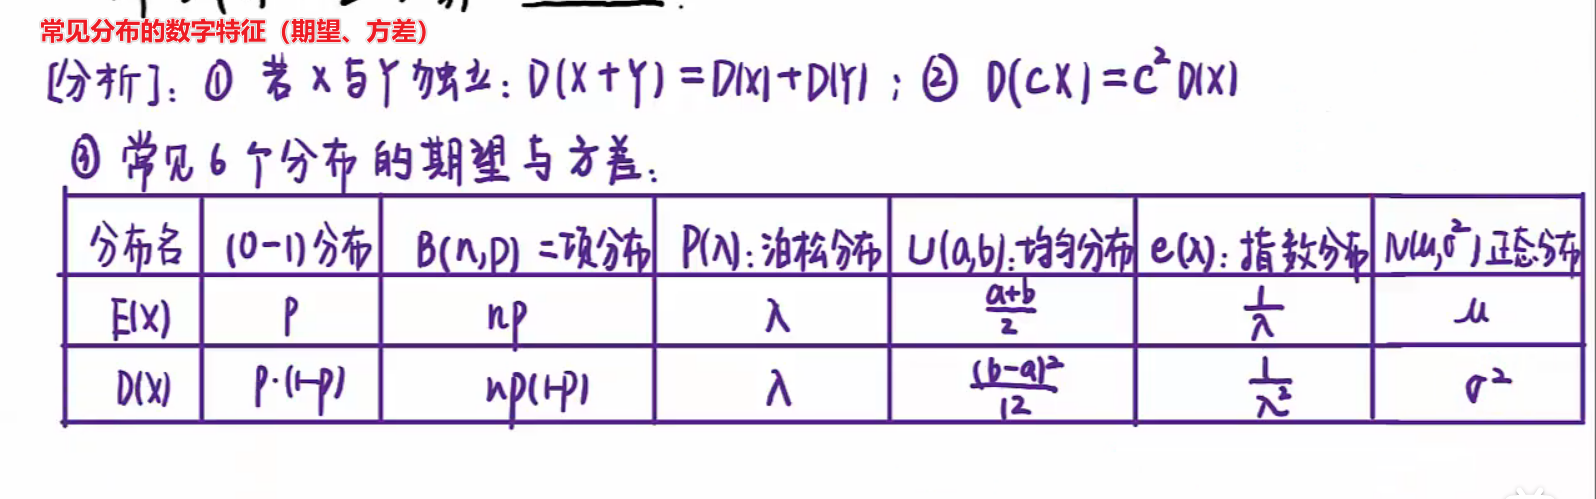 常见分布的数字特征（期望、方差）
[分析]：① 若X与Y为独立：D(X+Y)=D(X)+D(Y)；② D(CX)=C²D(X)
③ 常见6个分布的期望与方差：
分布名 (0-1)分布 B(n,p)二项分布 P(λ)：泊松分布 U(a,b)：均匀分布 e(λ)：指数分布 N(μ,σ²)正态分布
E(X) p np λ (a+b)/2 1/λ μ
D(X) p·(1-p) np(1-p) λ (b-a)²/12 1/λ² σ²